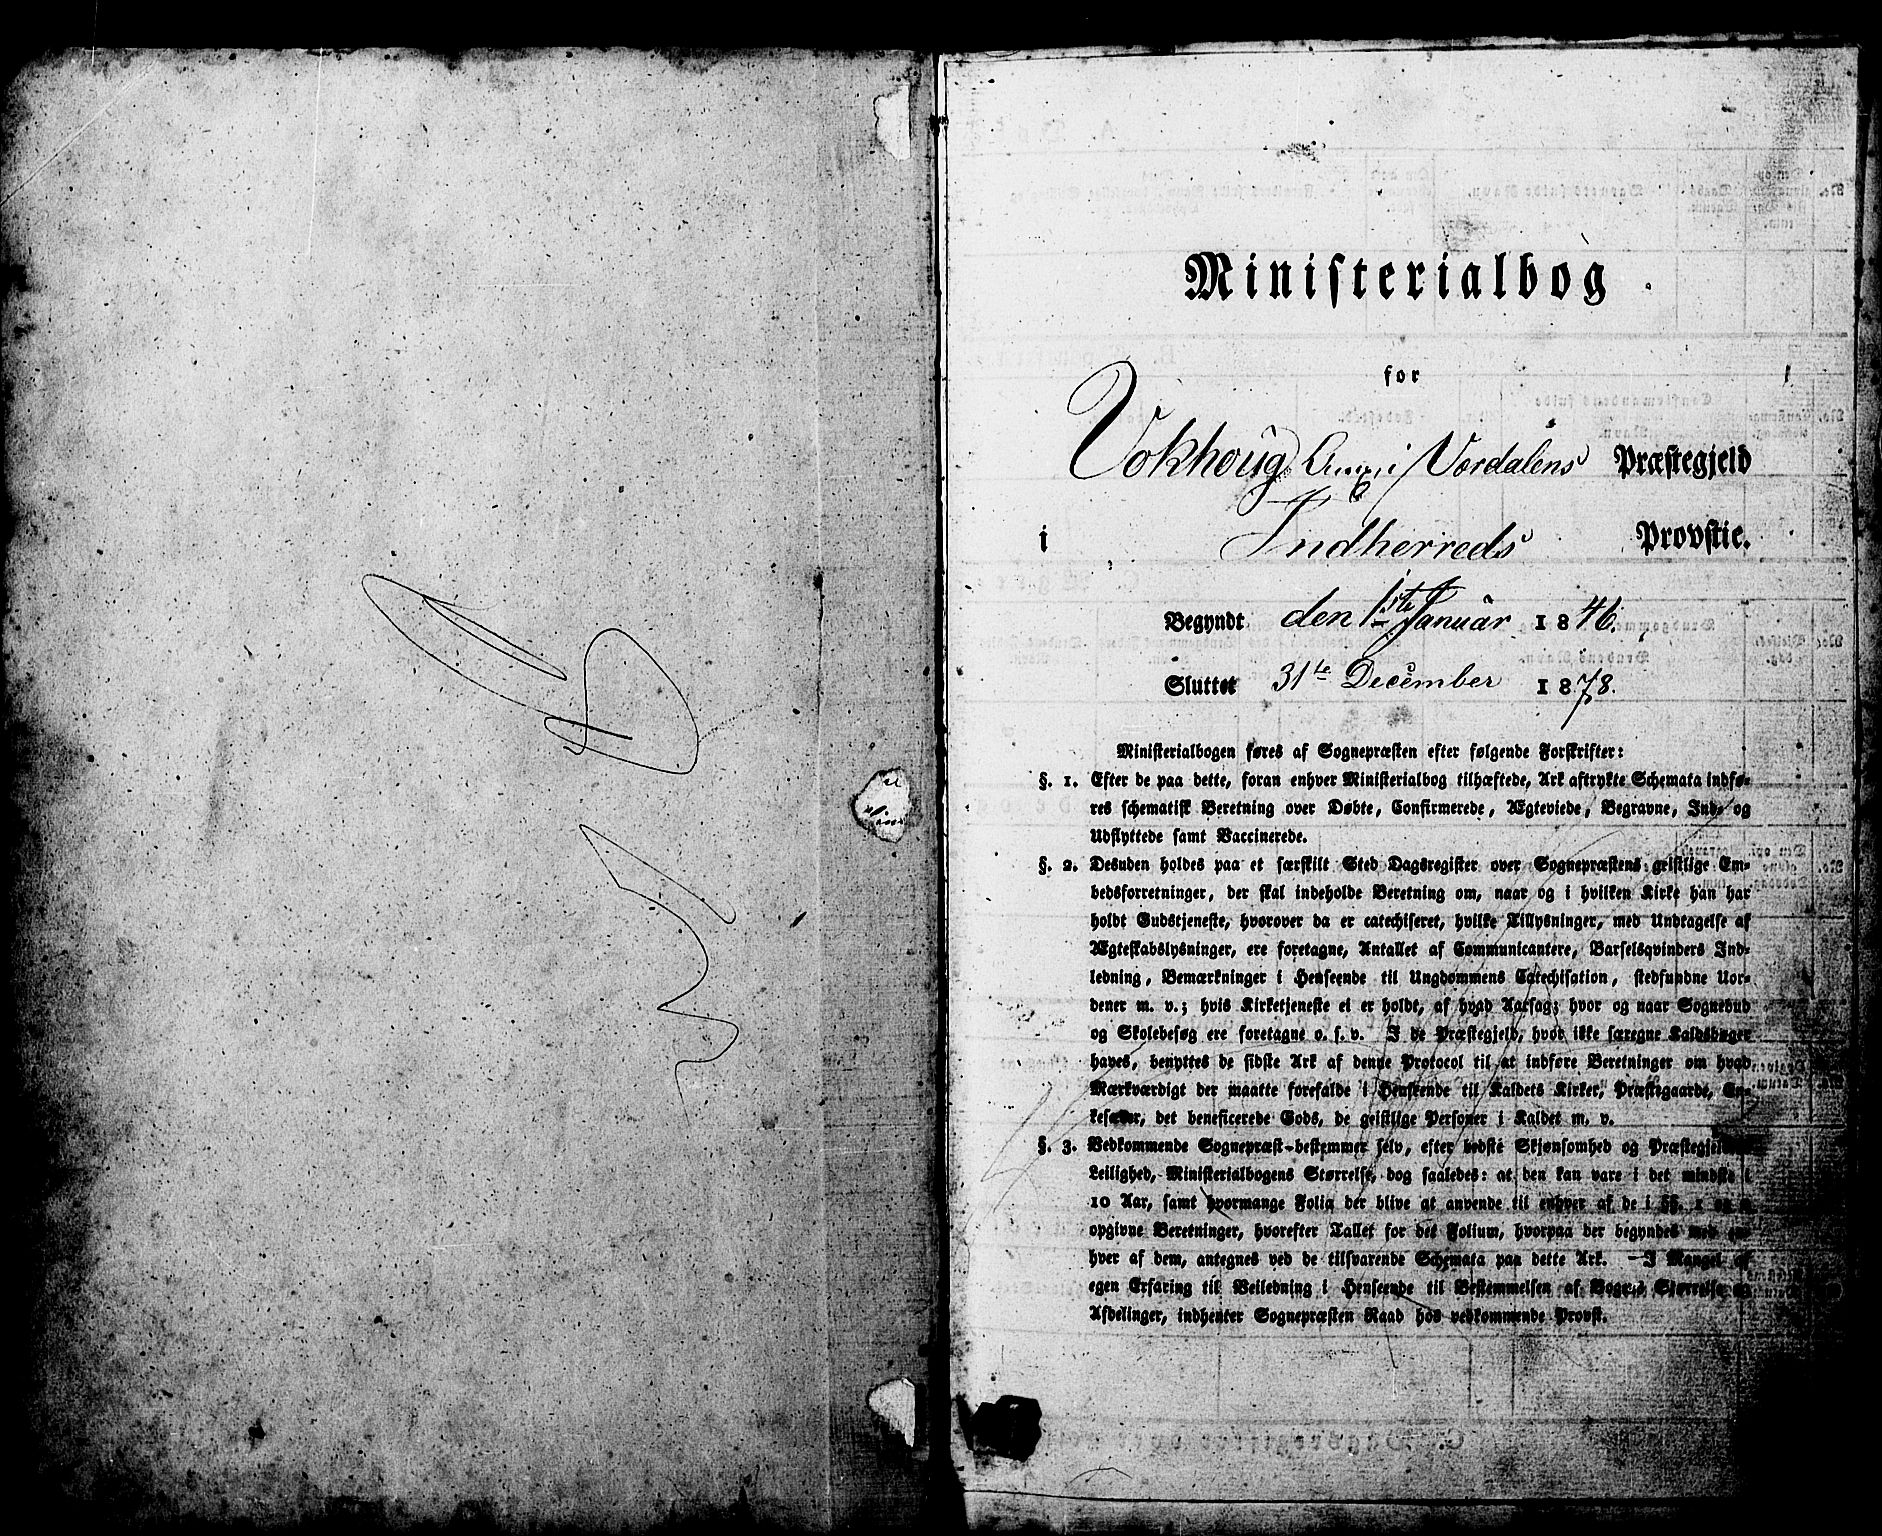 Ministerialbog
for
Vokhoug i Værdalens Præstegjeld
i Indherreds Provstie.
Begyndt den 1ste Januar 1846.
Sluttet 31te December 1878.
Ministerialbogen føres af Sognepræsten efter følgende Forskrifter:
§. 1. Efter de paa dette, foran enhver Ministerialbog tilhæftede, Ark aftrykte Schemata indfø-
res schematisk Beretning over Døbte, Confirmerede, Ægteviede, Begravne, Ind- og
Udflyttede samt Vaccinerede.
§. 2. Desuden holdes paa et særskilt Sted Dagsregister over Sognepræstens geistlige Em-
bedsforretninger, der skal indeholde Beretning om, naar og i hvilken Kirke han har
holdt Gudstjeneste, hvorover da er catechiseret, hvilke Tillysninger, med Undtagelse af
Ægteskabslysninger, ere foretagne, Antallet af Communicantere, Barselsqvinders Ind-
ledning, Bemærkninger i Henseende til Ungdommens Catechisation, stedfundne Uor-
dener m. v.; hvis Kirketjeneste ei er holdt, af hvad Aarsag; hvor og naar Sognebud
og Skolebesøg ere foretagne o. s. v. I de Præstegjeld, hvor ikke særegne Kaldsbøger
haves, benyttes de sidste Ark af denne Protocol til at indføre Beretninger om hvad
Mærkværdigt der maatte forefalde i Henseende til Kaldets Kirker, Præstegaarde, En-
kesæder, det beneficerede Gods, de geistlige Personer i Kaldet m. v.
§. 3. Vedkommende Sognepræst bestemmer selv, efter bedste Skjønsomhed og Præstegjeldets
Leilighed, Ministerialbogens Størrelse, dog saaledes: at den kan vare i det mindste i
10 Aar, samt hvormange Folia der blive at anvende til enhver af de i §§. 1 og 2
opgivne Beretninger, hvorefter Tallet for det Folium, hvorpaa der begyndes med en-
hver af dem, antegnes ved de tilsvarende Schemata paa dette Ark. – I Mangel af
egen Erfaring til Veiledning i Henseende til Bestemmelsen af Bogens Størrelse og
Afdelinger, indhenter Sognepræsten Raad hos vedkommende Provst.